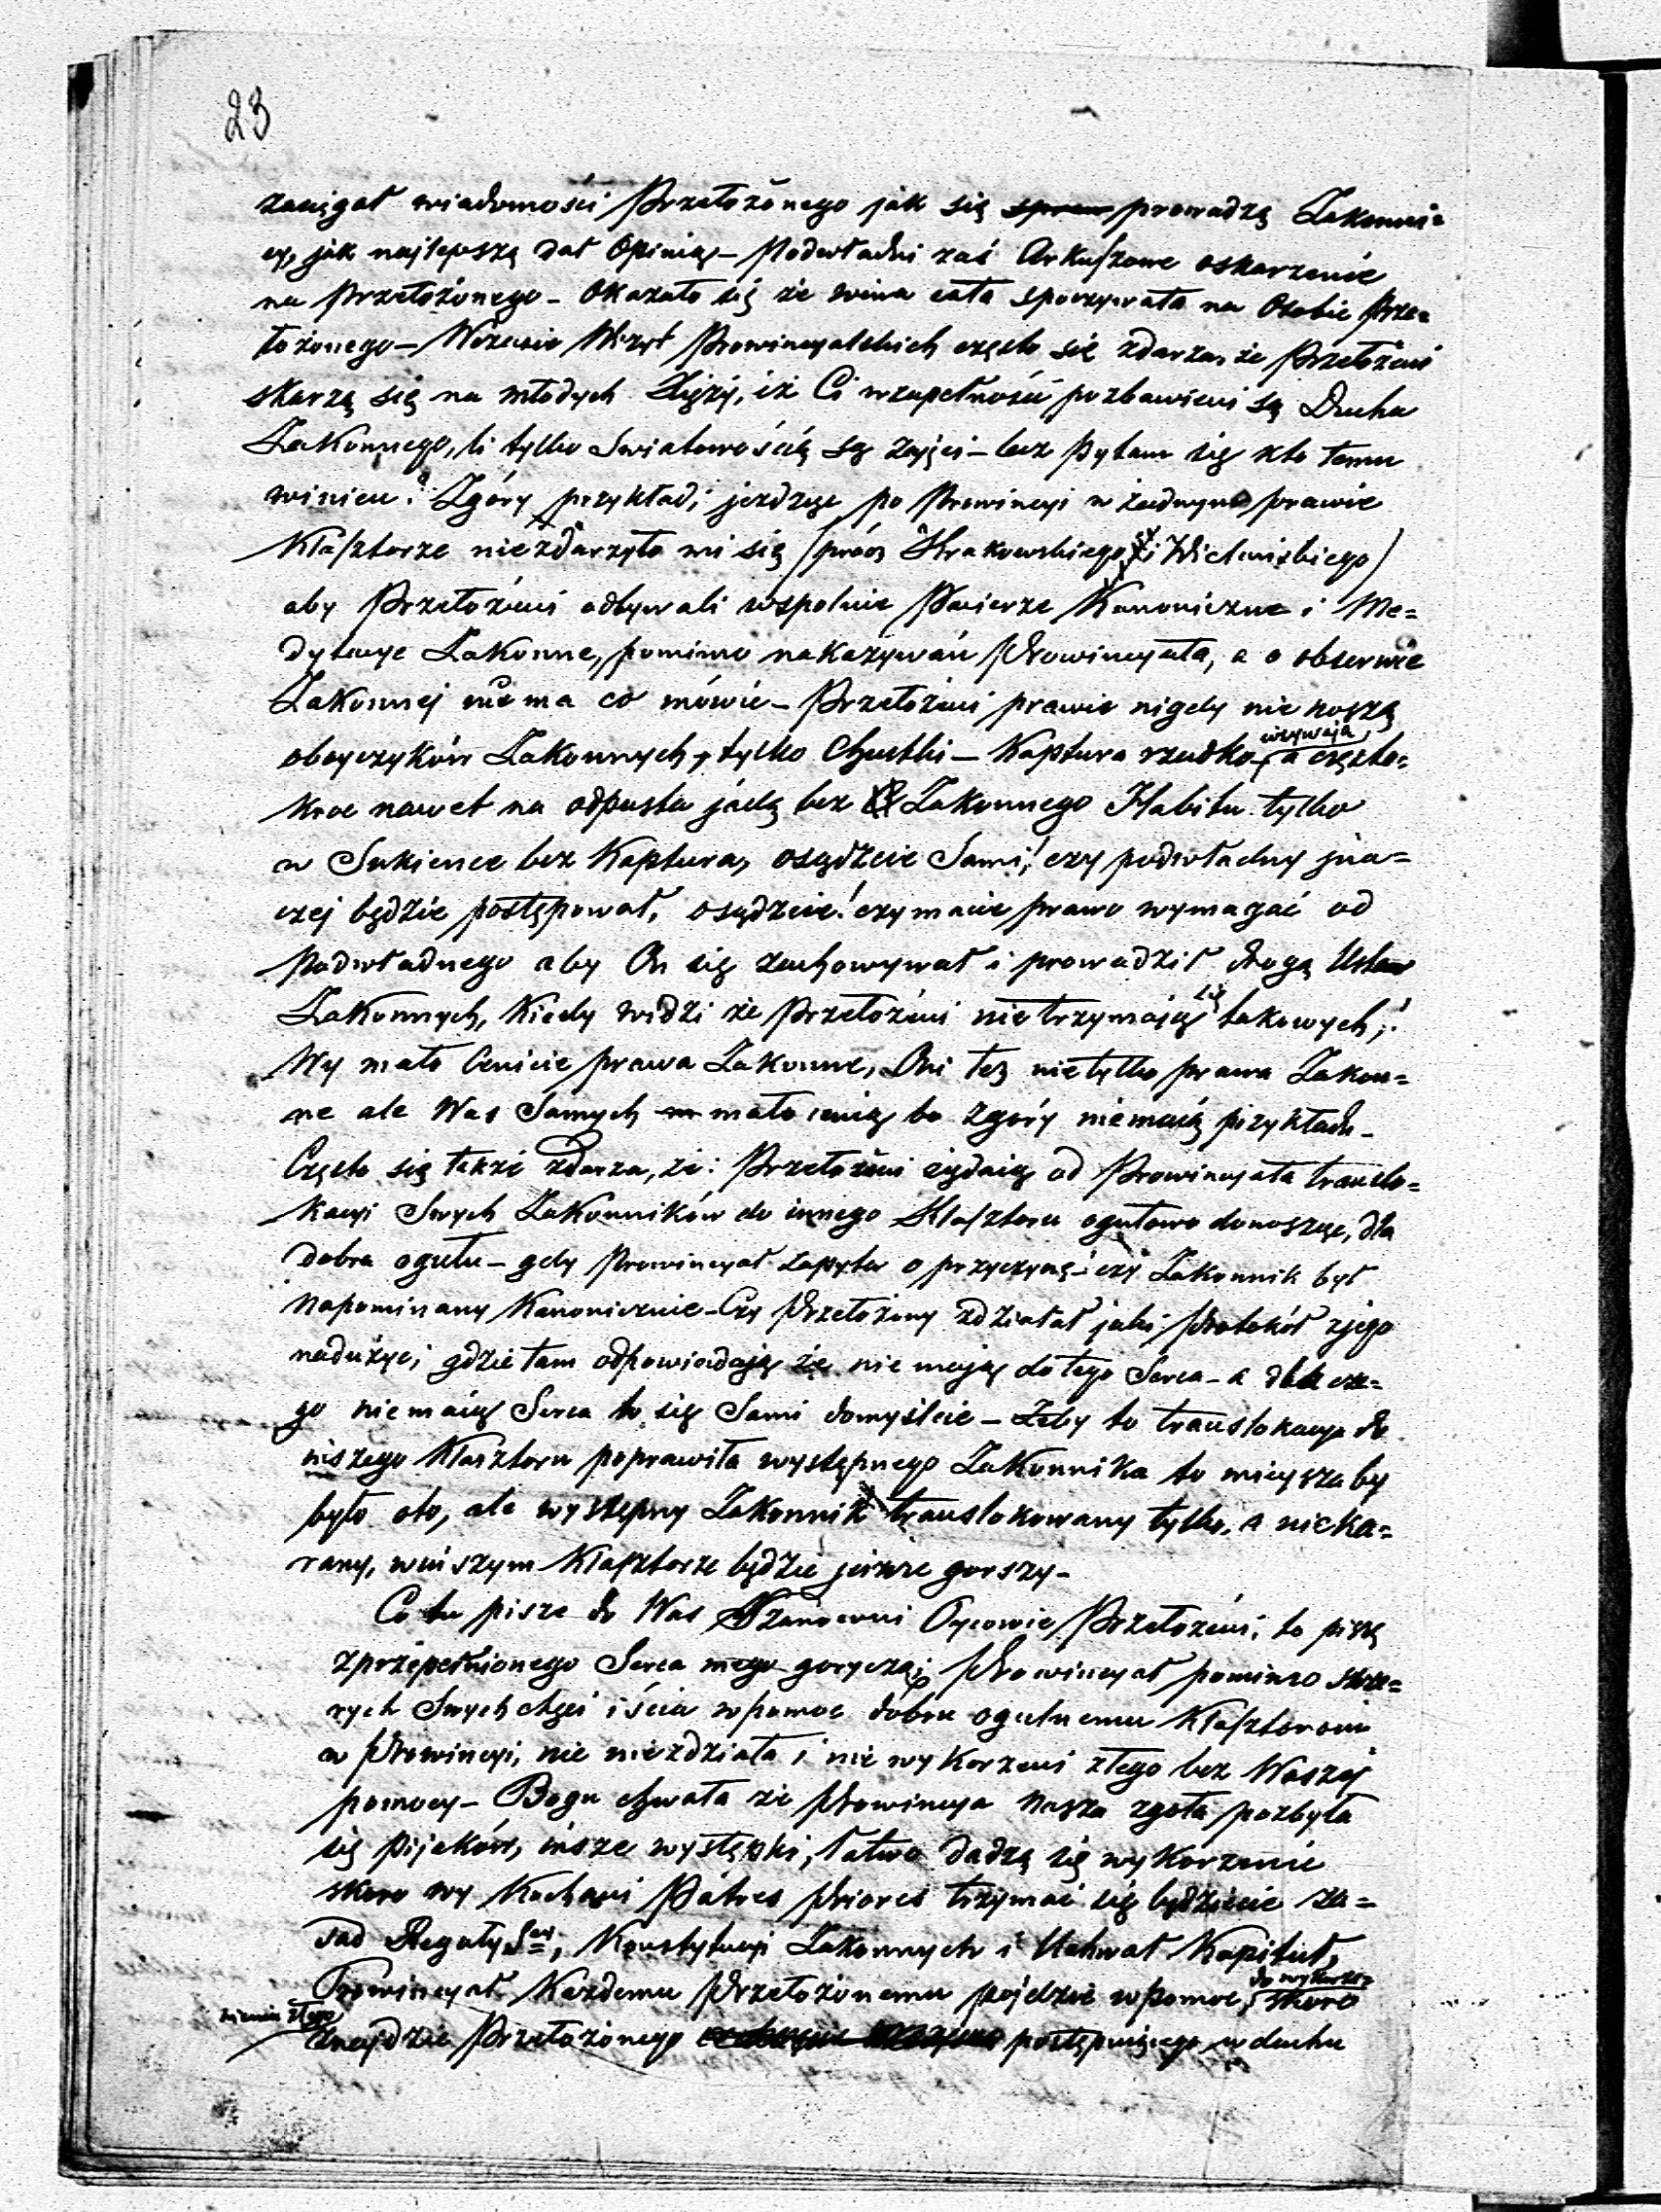 23
zaciągał wiadomości Przełożonego jak się prowadzą Zakonni=
cy, jak najlepszą dał Opinią – Podwładni zaś Arkuszowe oskarzenie
na Przełożonego – Okazało się że wina cała spoczywała na Osobie Prze=
łożonego – Wczasie Wizyt Prowincyalskich często się zdarza, że Przełożeni
skarzą się na młodych Xięży, iż Ci wzupełności pozbawieni są Ducha
Zakonnego, li tylko Swiatowością są zajęci – lecz pytam się kto temu
winien? Zgóry przykład; jezdząc po Prowincyi w żadnym prawie
Klasztorze niezdarzyło mi się (prócz Krakowskiego i )
aby Przełożeni odbywali wspolnie Pacierze Kanoniczne i Me=
dytacye Zakonne, pomimo nakazywań Prowincyała, a o obserwie
Zakonnej niema co mówić – Przełożeni prawie nigdy nie noszą
obojczyków Zakonnych, tylko Chustki – Kaptura rzadko używają, a często=
kroc nawet na odpusta jadą bez Zakonnego Habitu tylko
w Sukience bez Kaptura, osądzcie Sami! czy podwładny ina=
czej będzie postępował, osądzcie! czy macie prawo wymagać od
Podwładnego aby On się zachowywał i prowadził drogą Ustaw
Zakonnych, Kiedy widzi że Przełożeni nietrzymają się takowych;
Wy mało Cenicie prawa Zakonne, Oni też nietylko prawa Zakon=
ne ale Was Samych mało cenią bo zgóry niemają przykładu –
Często się także zdarza, że: Przełożeni żądają od Prowincyała translo=
kacyi Swych Zakonników do innego Klasztoru ogułowo donosząc, dla
dobra ogułu – gdy Prowincyał zapyta o przyczynę – czy Zakonnik był
Napominany Kanonicznie – Czy Przełożony zdziałał jaki Protokół zjego
nadużyć; gdzie tam odpowiadają że nie mają do tego Serca – a dla cze=
go niemają Serca to się Sami domyślcie – Żeby to translokacya do
inszego Klasztoru poprawiła występnego Zakonnika to mniejsza by
było oto, ale występny Zakonnik translokowany tylko, a nieka=
rany, winszym Klasztorze będzie jeszcze gorszy –
Co tu pisze do Was Szanowni Oycowie Przełożeni, to piszę
zprzepełnionego Serca mego goryczą; Prowincyał pomimo szcze=
rych Swych chęci iścia wpomoc dobru ogulnemu Klasztorom
w Prowincyi, nic niezdziała i nie wykorzeni złego bez Waszéj
pomocy – Bogu chwała że Prowincya Nasza zgoła pozbyła
się pijaków, insze występki, łatwo dadzą się wykorzenić
skoro wy Kochani Patres Priores trzymać się będziecie za=
sad Reguły Sej, Konstytucyi Zakonnych i Uchwał Kapituł,
Prowincyał Każdemu Przełożonemu pójdzie wpomoc do wykorze=
nienia złego, skoro
znajdzie Przełożonego postępującego w duchu